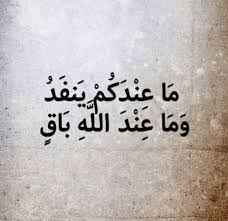 مَا عِنْدَكُمْ يَنفَدُ
وَمَا عِنْدَ اللَّهِ بَاقٍ